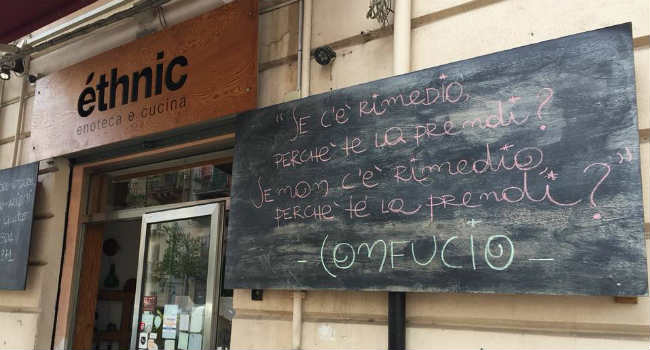 éthnic
enoteca e cucina
"SE C'È RIMEDIO,
PERCHÈ TE LA PRENDI?
SE NON C'È RIMEDIO
PERCHÈ TE LA PRENDI?"
- CONFUCIO -